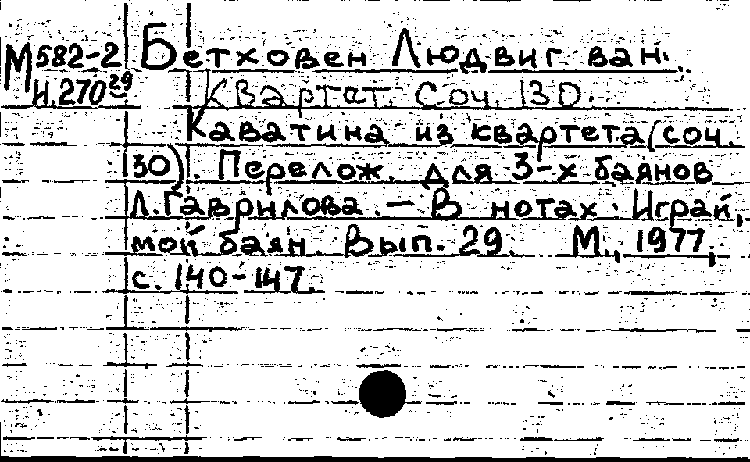 М582-2 Бетховен Людвиг ван.
И.270²⁹ Квартет. Соч. 130.
Каватина из квартета (соч.
130). Перелож. для 3-х баянов
Л.Гаврилова. – В нотах: Играй,
мой баян. Вып. 29. М., 1977,
с. 140-147.